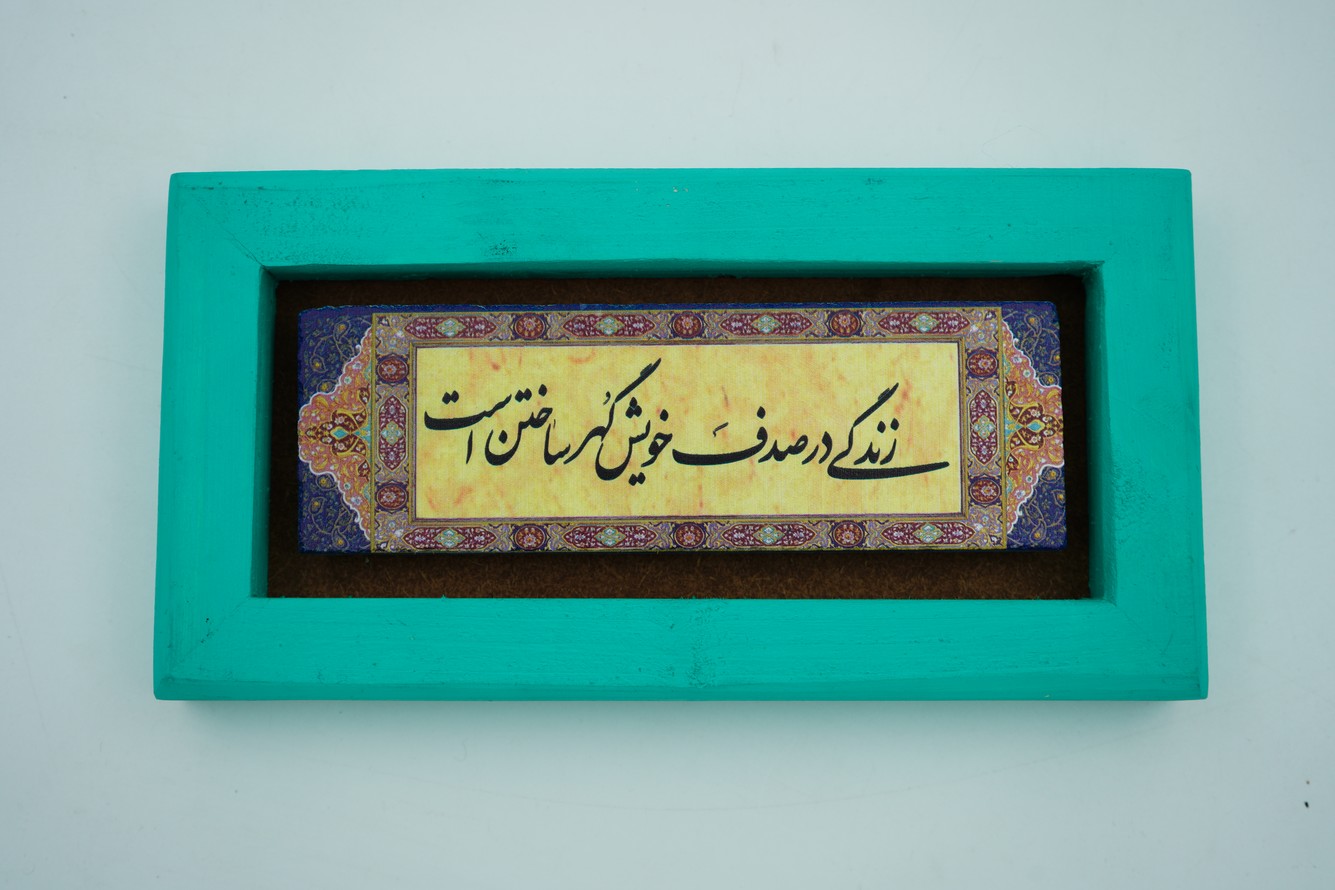 زندگی در صدف خویش گُهر ساختن است